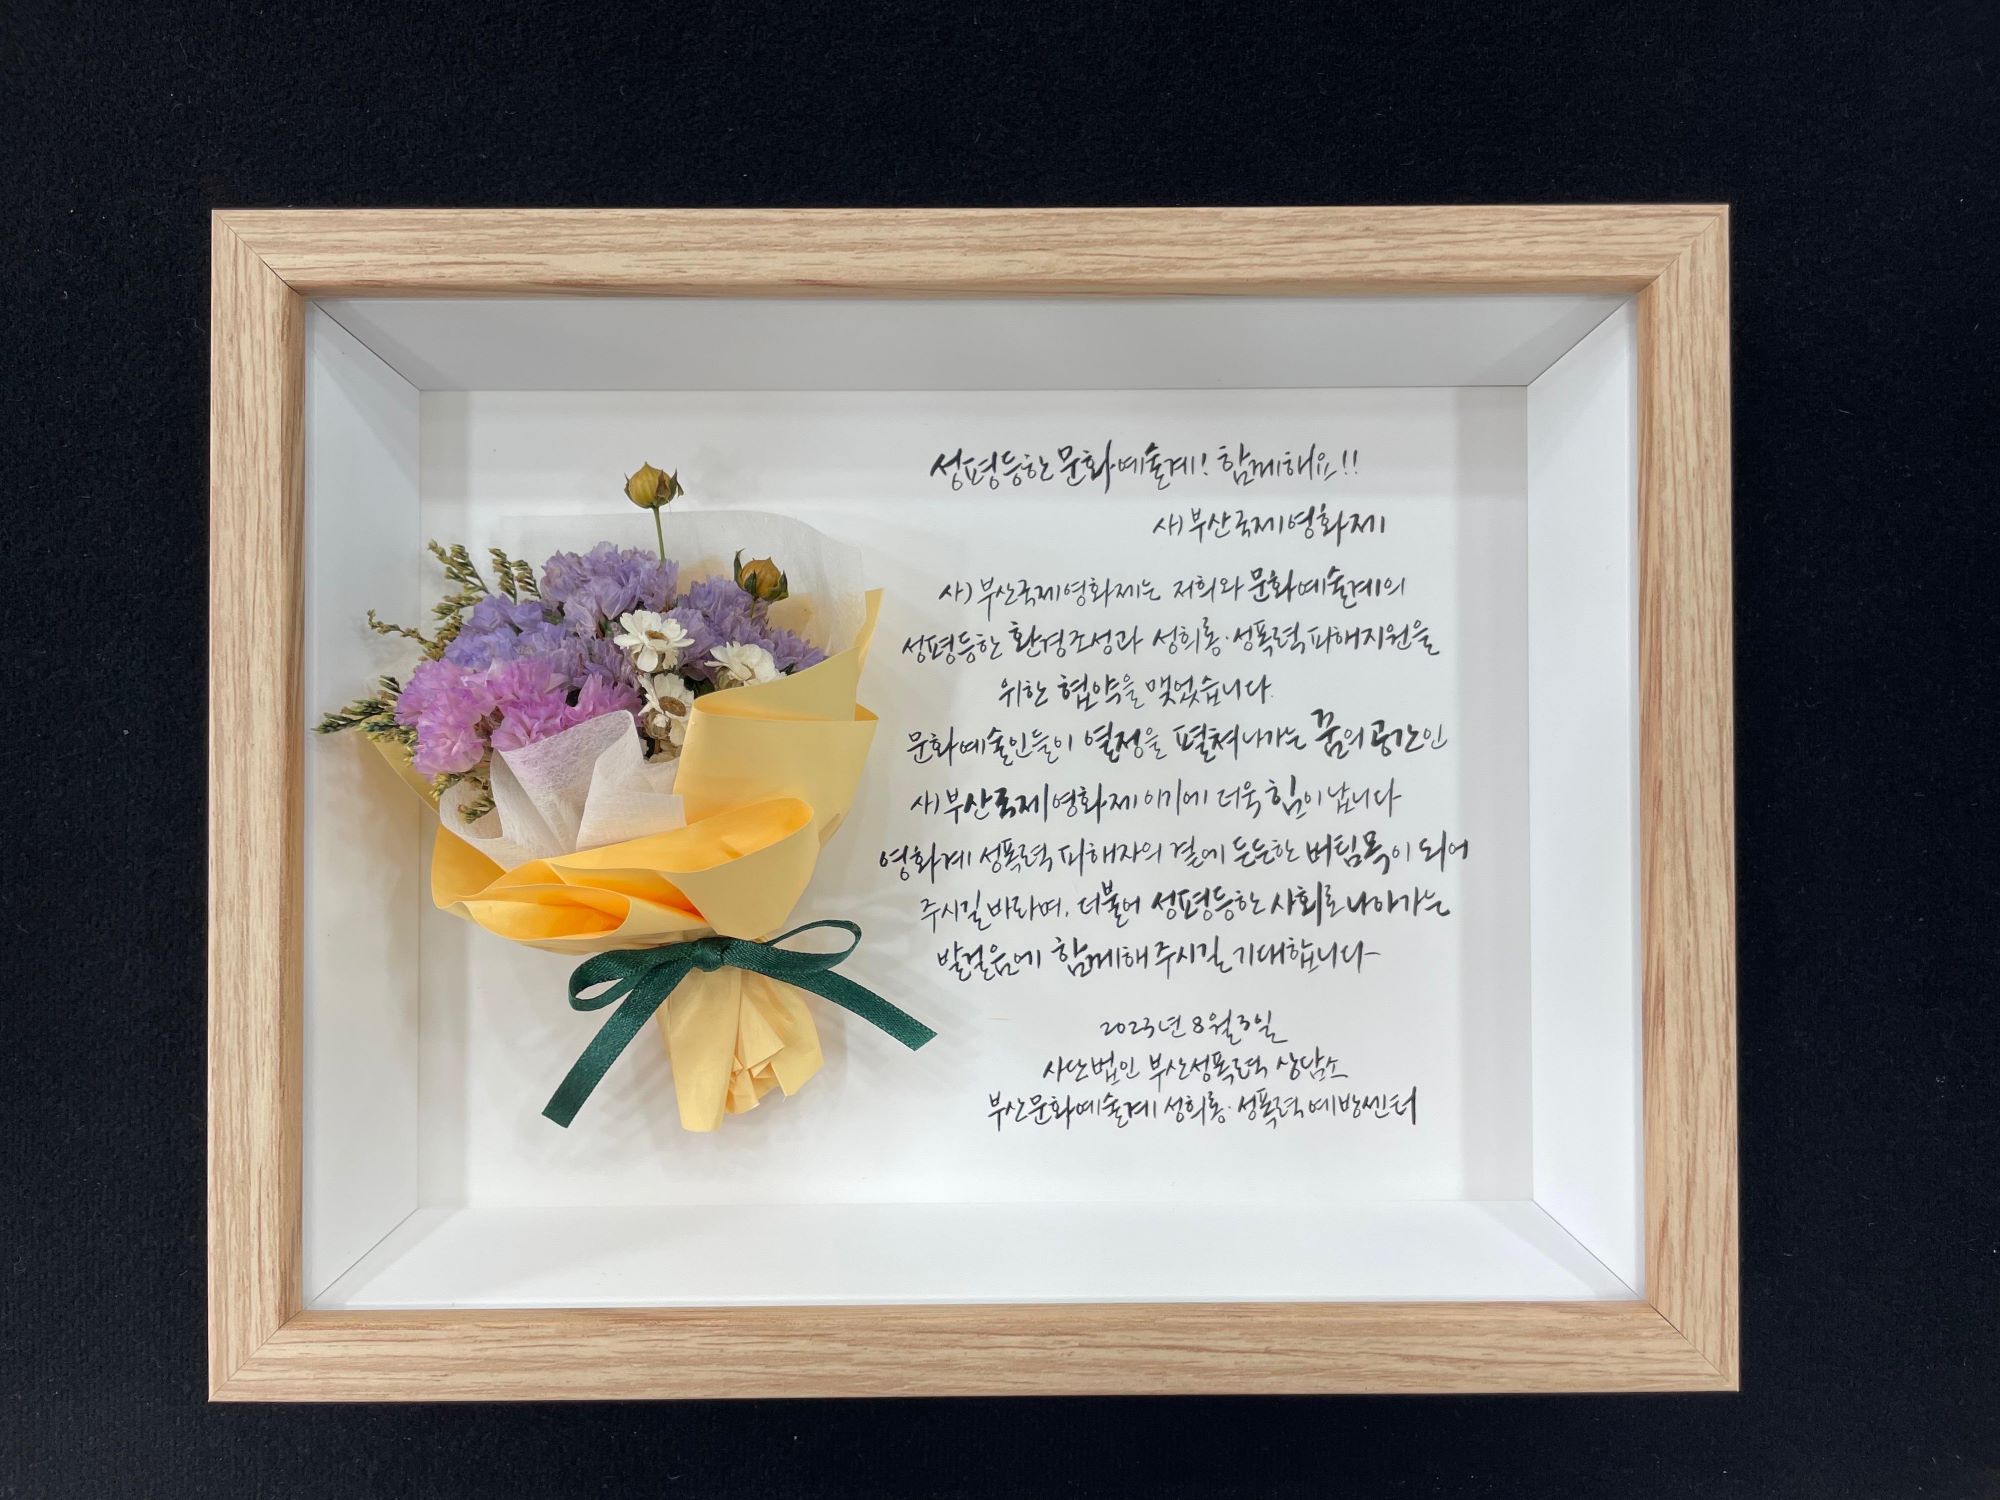 성평등한 문화예술계! 함께해요!!
사)부산국제영화제
사)부산국제영화제는 저희와 문화예술계의
성평등한 환경조성과 성희롱·성폭력 피해지원을
위한 협약을 맺었습니다.
문화예술인들이 열정을 펼쳐나가는 꿈의 공간인
사)부산국제영화제이기에 더욱 힘이 납니다
영화계 성폭력 피해자의 곁에 든든한 버팀목이 되어
주시길 바라며, 더불어 성평등한 사회로 나아가는
발걸음에 함께해 주시길 기대합니다
2023년 8월 3일
사단법인 부산성폭력 상담소
부산문화예술계 성희롱·성폭력예방센터